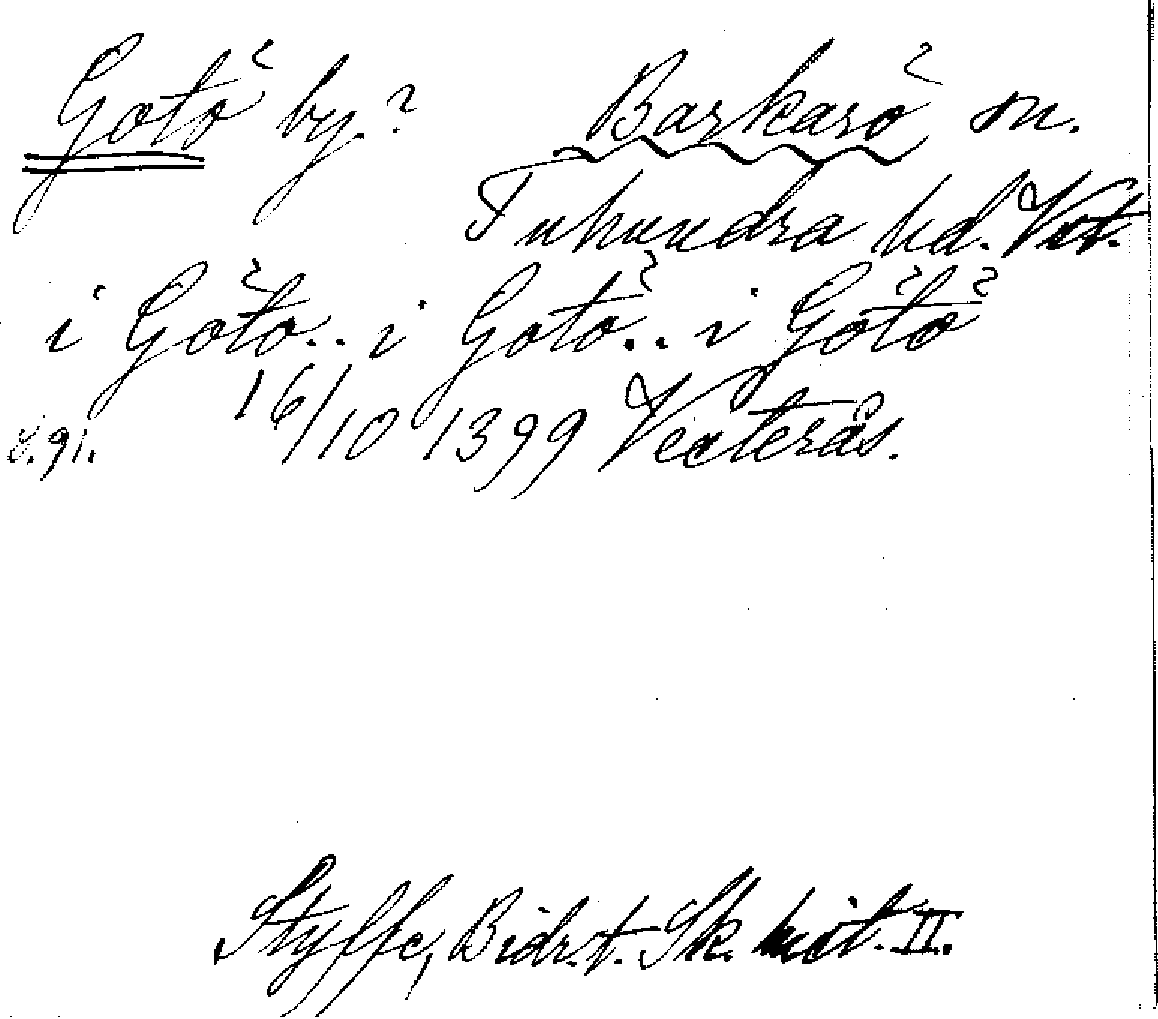 Gotö by.? Barkarö sn.
Tuhundra hd. Vst.
i Götö.. i Gotö.. i Götö
s.91. 16/10 1399 Vesterås.
Styffe, Bidr.t. Sk. hist. II.